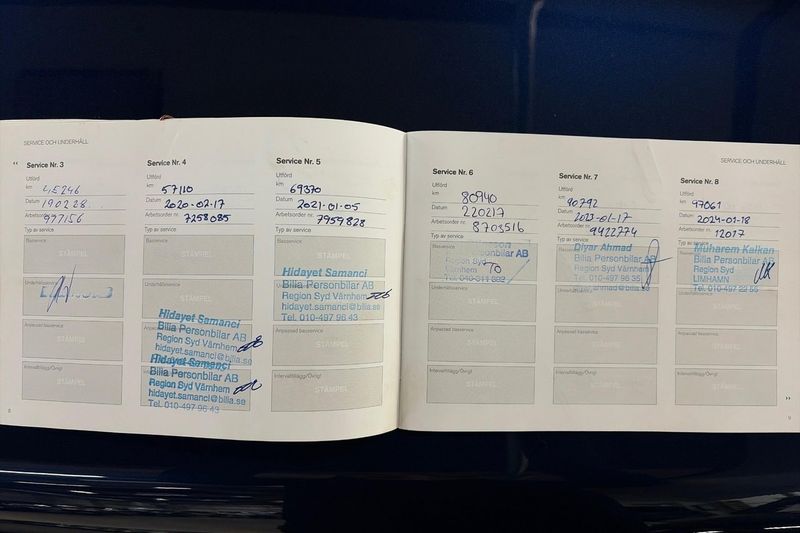 SERVICE OCH UNDERHÅLL
Service Nr. 3
Utförd
km 45246
Datum 190228
Arbetsorder nr. 977156
Typ av service
Basservice
STÄMPEL
Underhållsservice
Anpassad basservice
STÄMPEL
Intervalltillägg/Övrigt
STÄMPEL
8
Service Nr. 4
Utförd
km 57110
Datum 2020-02-17
Arbetsorder nr. 7258085
Typ av service
Basservice
STÄMPEL
STÄMPEL
Hidayet Samanci
Bilia Personbilar AB
Region Syd Värnhem
hidayet.samanci@bilia.se
Hidayet Samanci
Bilia Personbilar AB
Region Syd Värnhem
hidayet.samanci@bilia.se
Tel. 010-497 96 43
Service Nr. 5
Utförd
km 69370
Datum 2021-01-05
Arbetsorder nr. 7959828
Typ av service
Basservice
Hidayet Samanci
Bilia Personbilar AB
Region Syd Värnhem
hidayet.samanci@bilia.se
Tel. 010-497 96 43
Anpassad basservice
STÄMPEL
Intervalltillägg/Övrigt
STÄMPEL
SERVICE OCH UNDERHÅLL
Service Nr. 6
Utförd
km 80940
Datum 220217
Arbetsorder nr. 8703516
Typ av service
Basservice
Personbilar AB
Region Syd
Värnhem
STÄMPEL
Anpassad basservice
STÄMPEL
Intervalltillägg/Övrigt
STÄMPEL
Service Nr. 7
Utförd
km 90792
Datum 2023-01-17
Arbetsorder nr. 9422774
Typ av service
Diyar Ahmad
Bilia Personbilar AB
Region Syd Värnhem
Tel. 010-497 96 35
STÄMPEL
Anpassad basservice
STÄMPEL
Intervalltillägg/Övrigt
STÄMPEL
Service Nr. 8
Utförd
km 97061
Datum 2024-01-18
Arbetsorder nr. 12017
Typ av service
Muharem Kalkan
Bilia Personbilar AB
Region Syd
LIMHAMN
Tel. 010-497 22 55
STÄMPEL
Anpassad basservice
STÄMPEL
Intervalltillägg/Övrigt
STÄMPEL
9